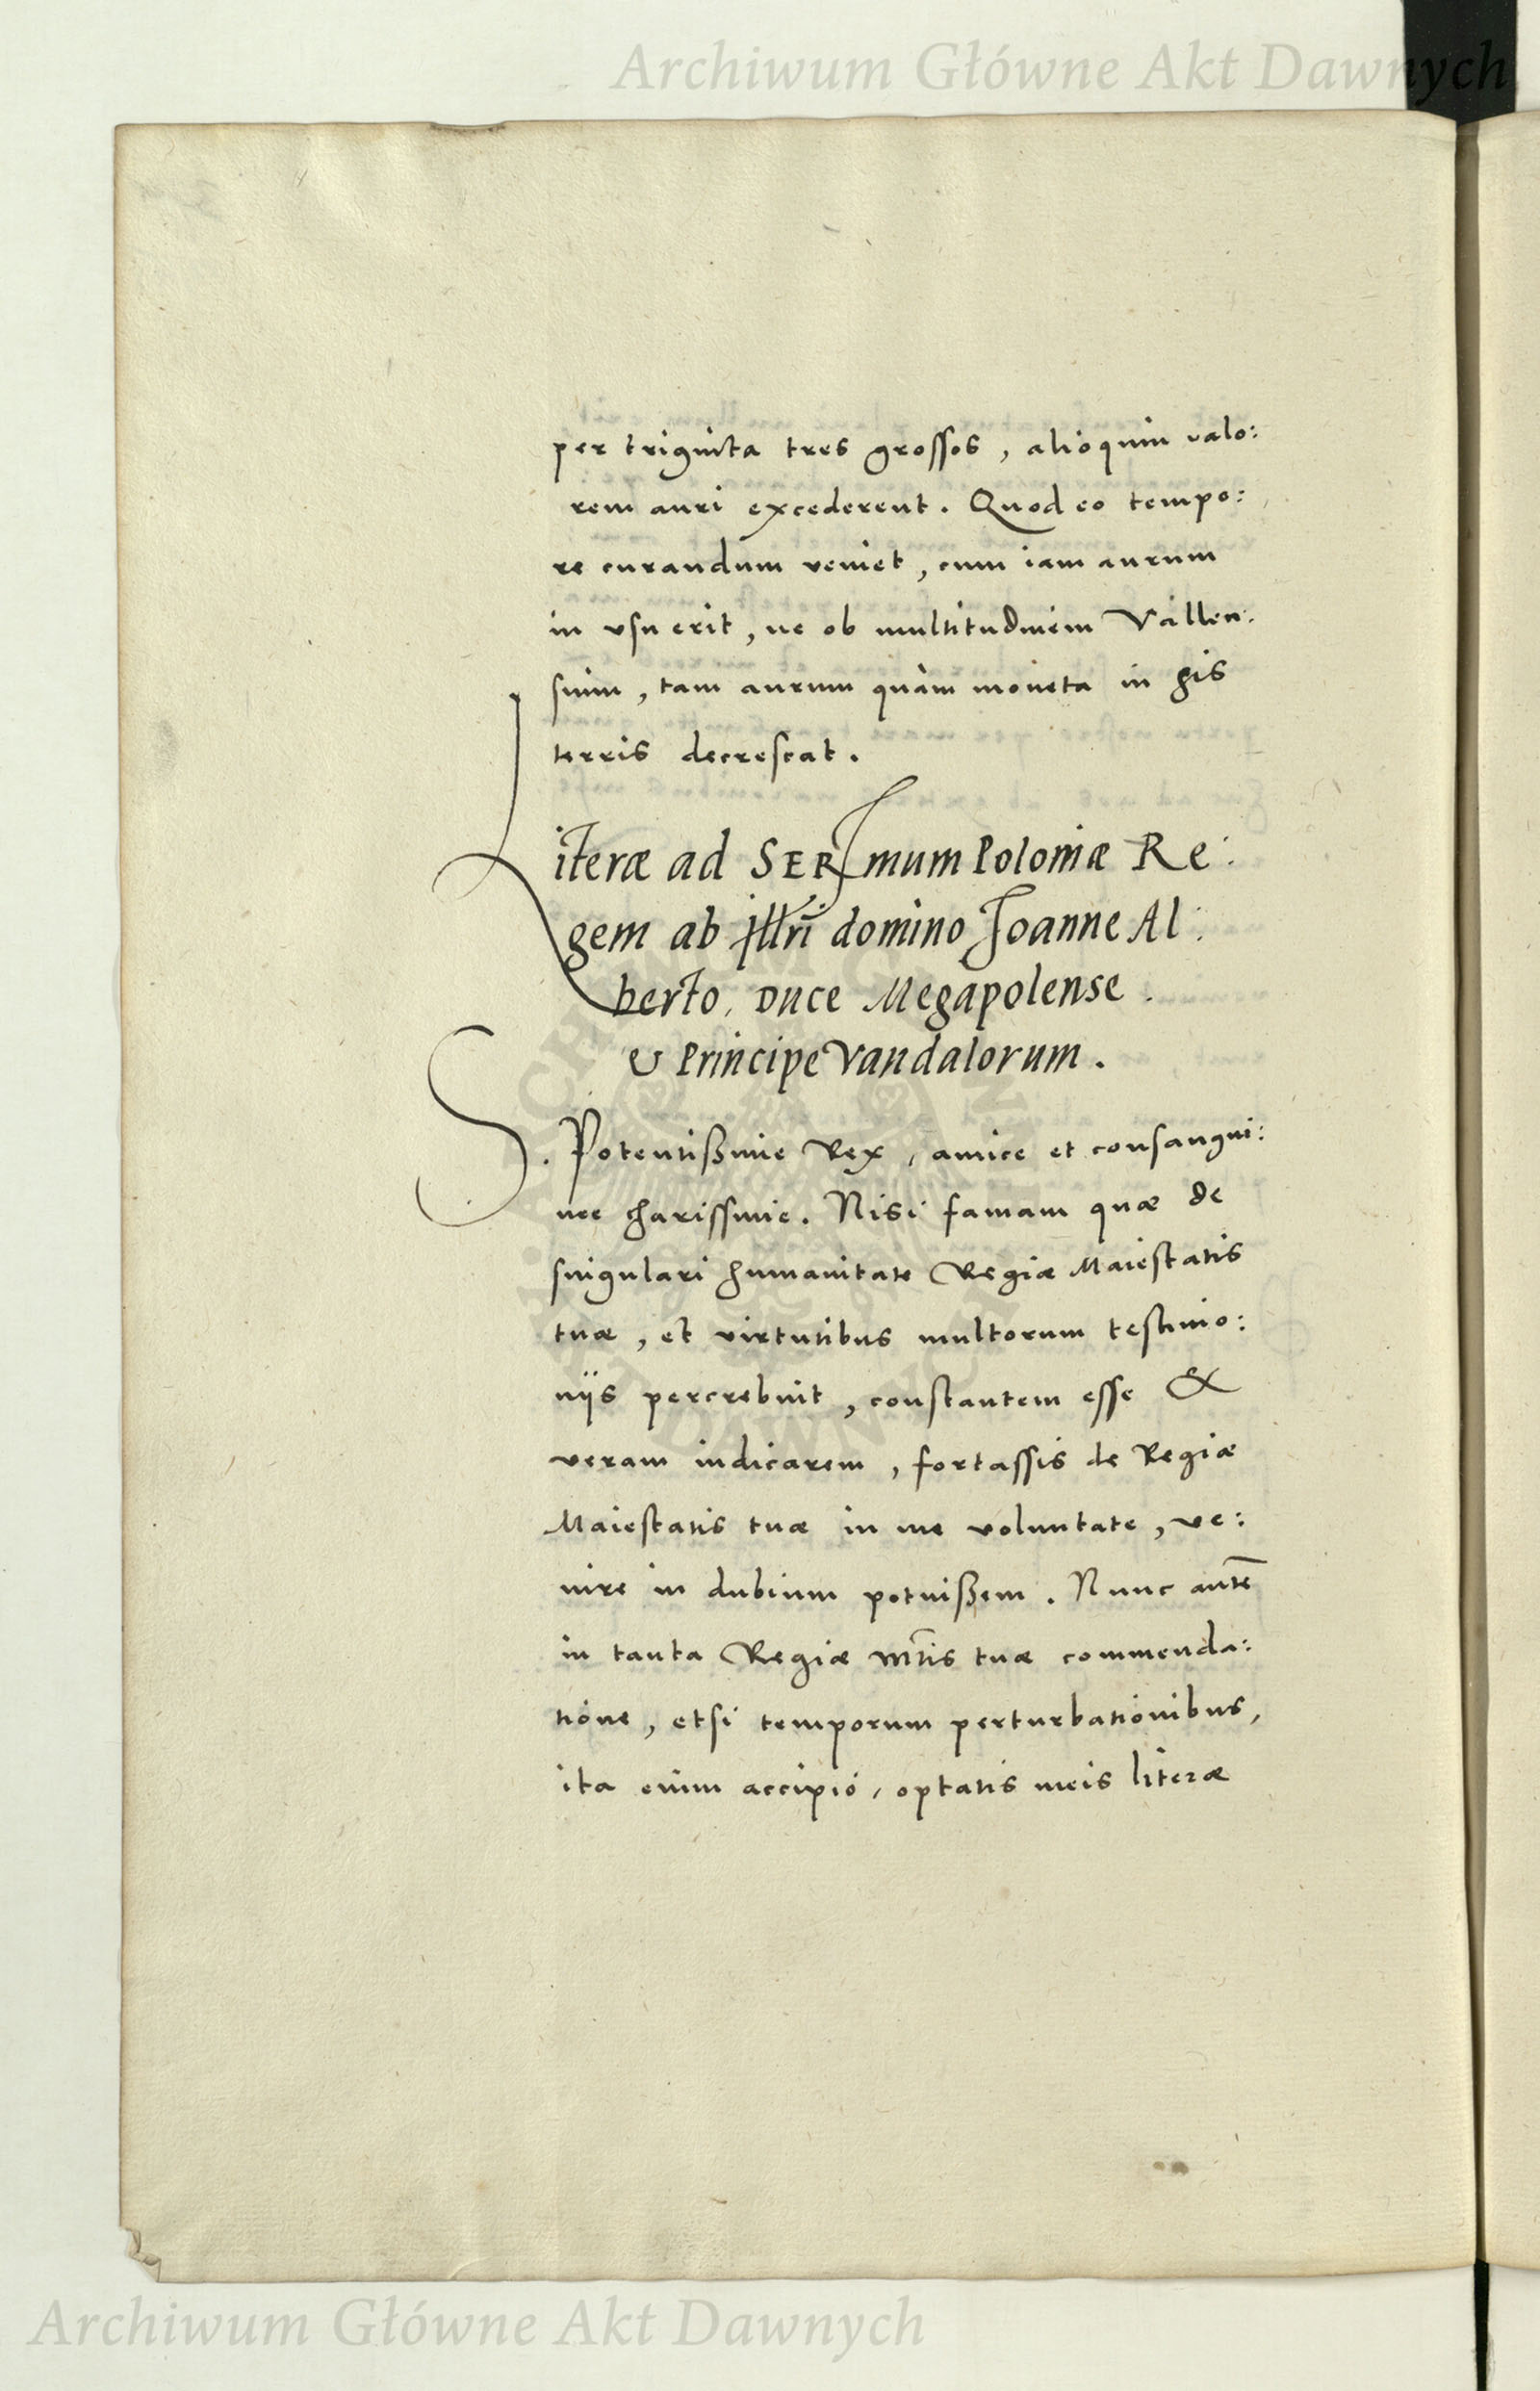 Archiwum Główne Akt Dawnych
per triginta tres grossos, alioquin valo:
rem auri excederent. Quod eo tempo:
re curandum veniet, cum iam aurum
in vsu erit, ne ob multitudinem Vallen:
sium, tam aurum quàm moneta in his
terris decrescat.
Literæ ad SERmum Poloniæ Re:
gem ab Illri domino Joanne Al:
berto, Duce Megapolense
& Principe Vandalorum.
S. Potentissime Rex, amice et consangui:
nee charissime. Nisi famam quæ de
singulari humanitate Regiæ Maiestatis
tuæ, et virtutibus multorum testimo:
niis percrebuit, constantem esse &
veram iudicarem, fortassis de Regiæ
Maiestatis tuæ in me voluntate, ve:
nire in dubium potuissem. Nunc autē
in tanta Regiæ Mtis tuæ commenda:
tione, etsi temporum perturbationibus,
ita enim accipio, optatis meis literæ
Archiwum Główne Akt Dawnych